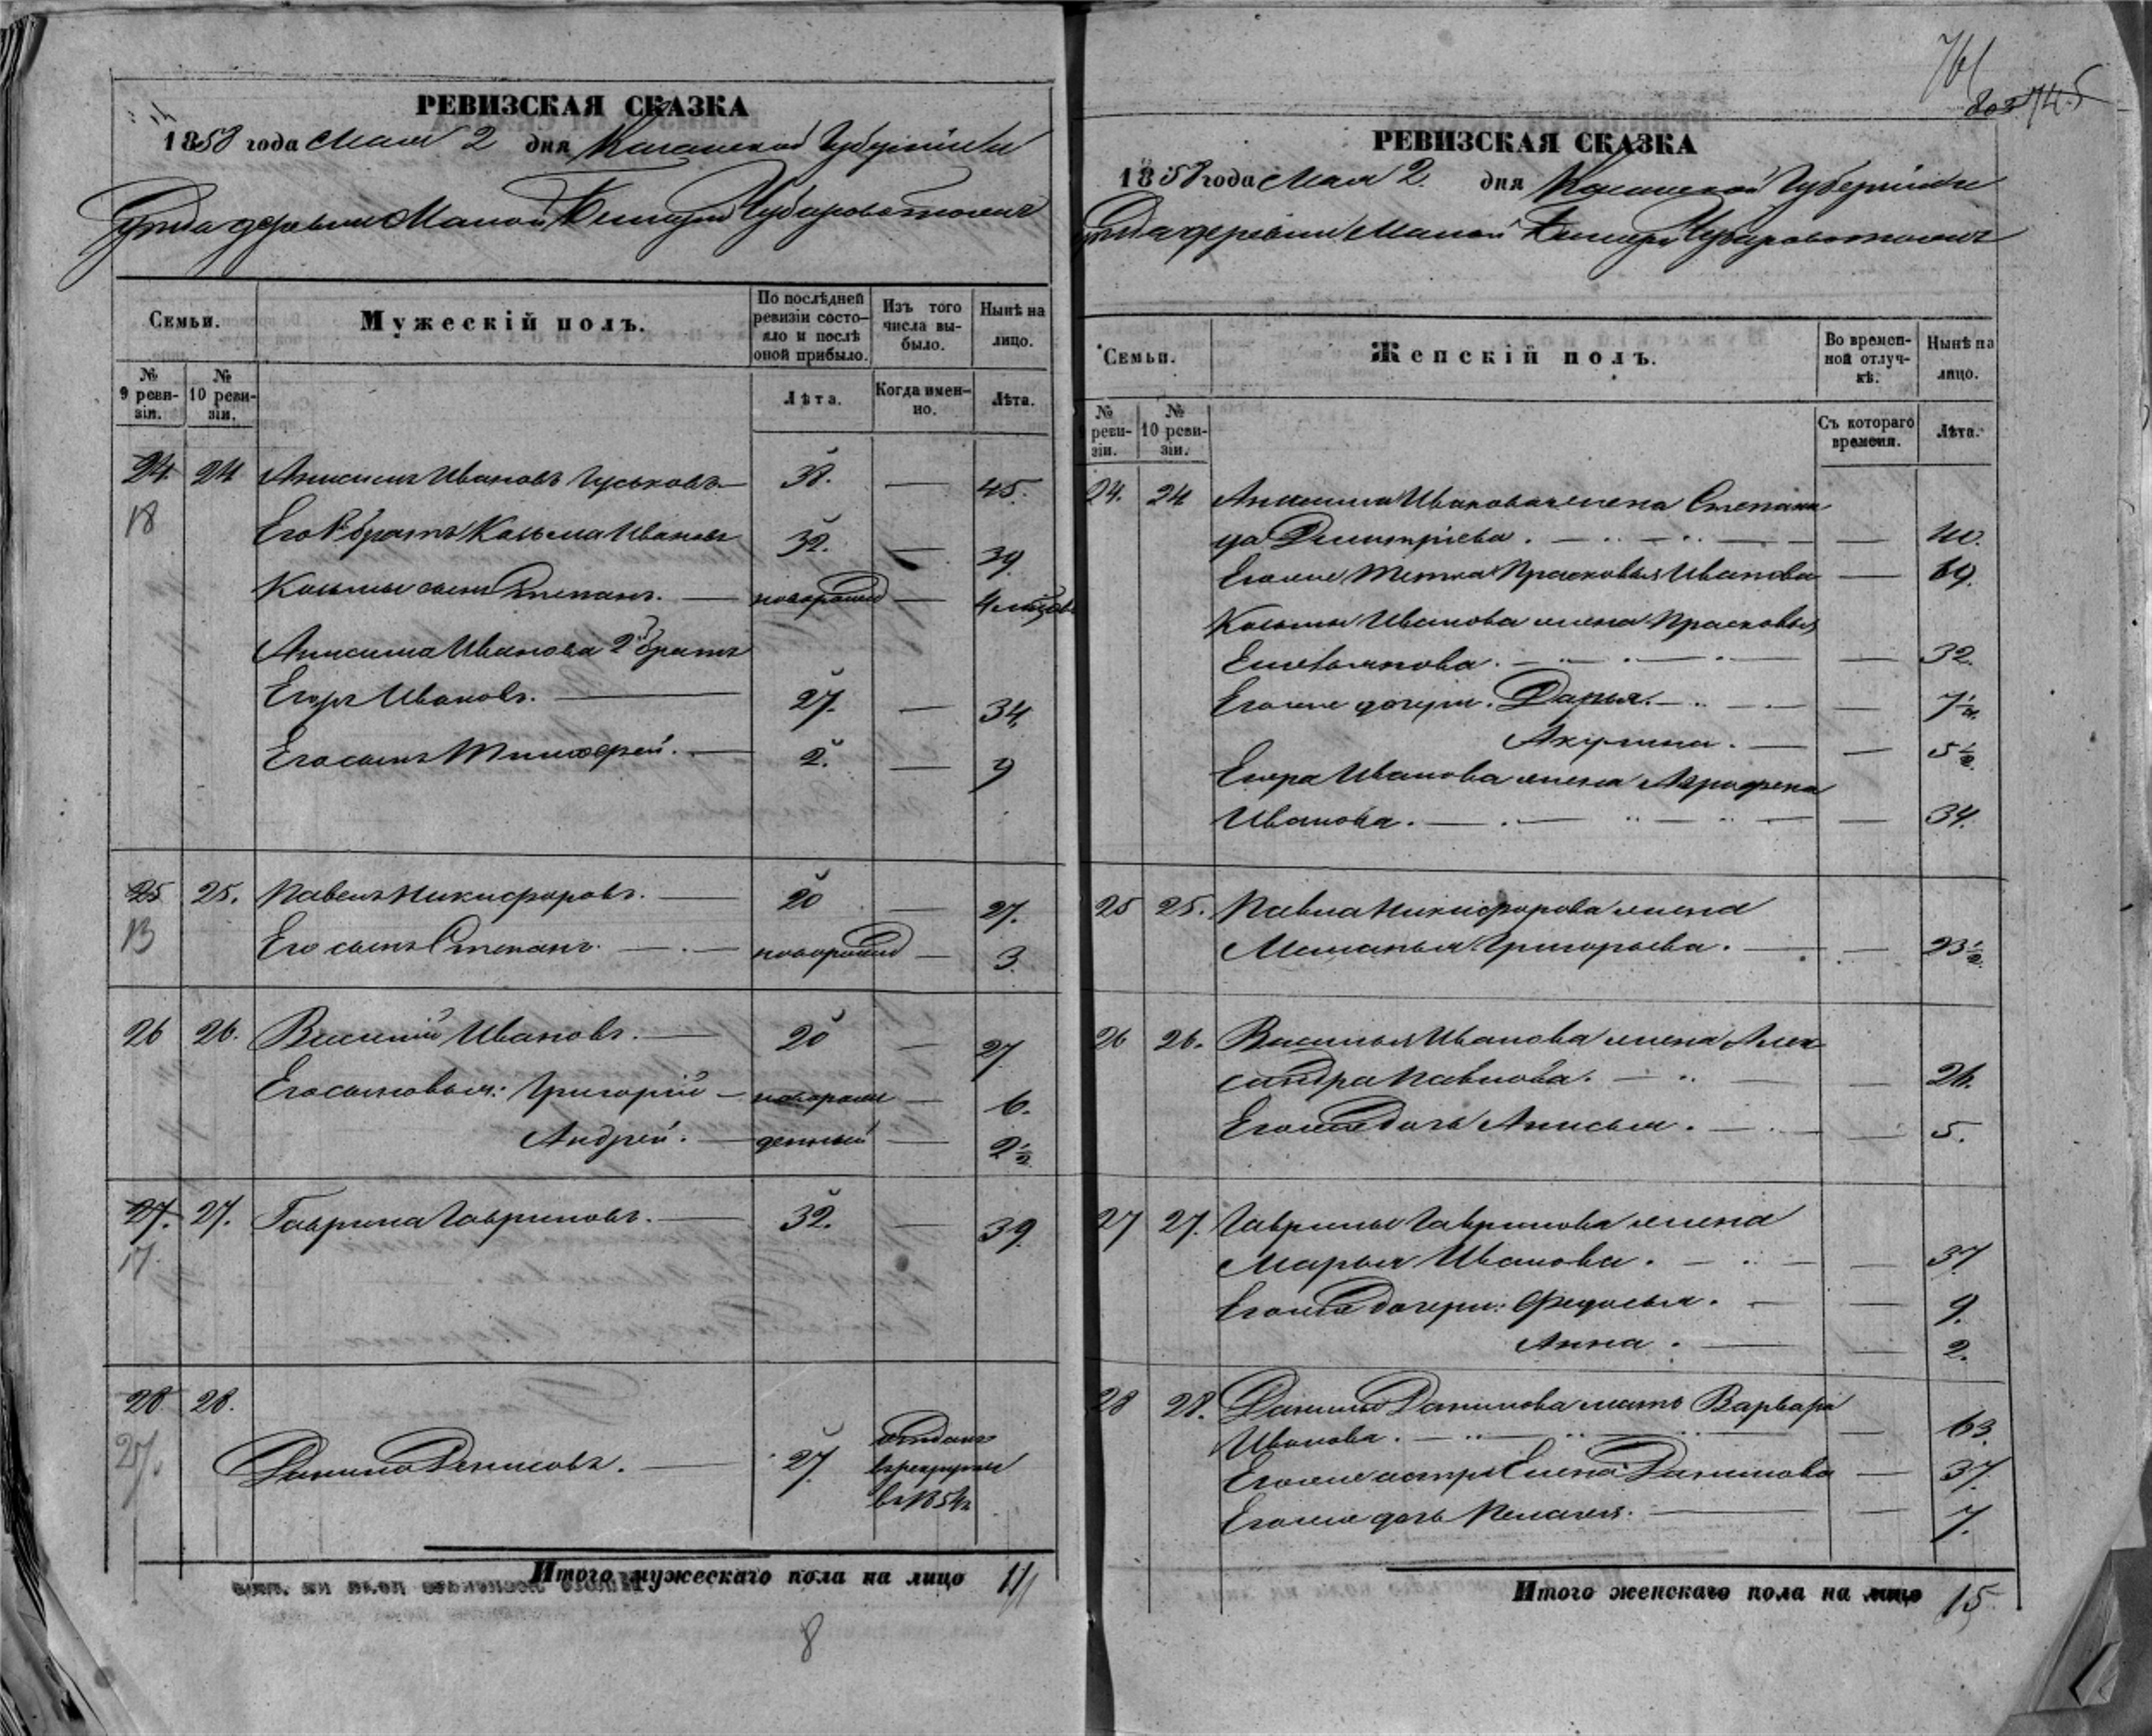 РЕВИЗСКАЯ СКАЗКА
1858 года Мая 2 дня Казанской Губерніи
уѣзда деревни Малой
Семьи.
Мужескій полъ.
По послѣдней ревизіи состояло и послѣ оной прибыло.
Изъ того числа выбыло.
Нынѣ на лицо.
№ 9 ревизіи.
№ 10 ревизіи.
Лѣта.
Когда именно.
Лѣта.
24. 24 Анисимъ Ивановъ Гуськовъ — 38. — 45.
18
Его 1й братъ Козьма Ивановъ 32. — 39.
Козьмы сынъ Степанъ. — новорожд — 4 мѣсяц
Анисима Иванова 2й братъ
Егоръ Ивановъ. — 27. — 34.
Его сынъ Тимофей. — 2. — 9
25 25. Павелъ Никифоровъ. — 20 — 27.
13
Его сынъ Степанъ. — новорожд — 3.
26 26. Василій Ивановъ. — 20 — 27
Его сыновья: Григорій — новорож — 6.
Андрей. — денный — 2 1/2
27. 27. Гаврила Гавриловъ. — 32. — 39.
17.
28 28.
27.
Данило Денисовъ. — 27. отданъ
въ рекруты
въ 1854
Итого мужескаго пола на лицо 11
8
761
745
РЕВИЗСКАЯ СКАЗКА
1858 года Мая 2. дня Казанской Губерніи
уѣзда деревни Малой
Семьи.
Женскій полъ.
Во временной отлучкѣ.
Нынѣ на лицо.
№ ревизіи.
№ 10 ревизіи.
Съ котораго времени.
Лѣта.
24. 24 Анисима Иванова жена Степани
да Димитріева. — — 40.
Его же тетка Прасковья Иванова — 69.
Козьмы Иванова жена Прасковья
Емельянова. — — 32.
Его же дочери. Дарья. — — 7 1/2.
Акулина. — — 5 1/2.
Егора Иванова жена Аграфена
Иванова. — — 34.
25 25. Павла Никифорова жена
Меланья Григорьева. — — 23 1/2.
26 26. Василья Иванова жена Алек
сандра Павлова. — — 26.
Его же дочь Анисья. — — 5.
27 27. Гаврилы Гаврилова жена
Марья Иванова. — — 37.
Его же дочери: Федосья. — — 9.
Анна. — — 2.
28 28. Данилы Данилова мать Варвара
Иванова. — — 63.
Его же сестра Елена Данилова — 37.
Его же дочь Пелагея. — — 7.
Итого женскаго пола на лицо 15